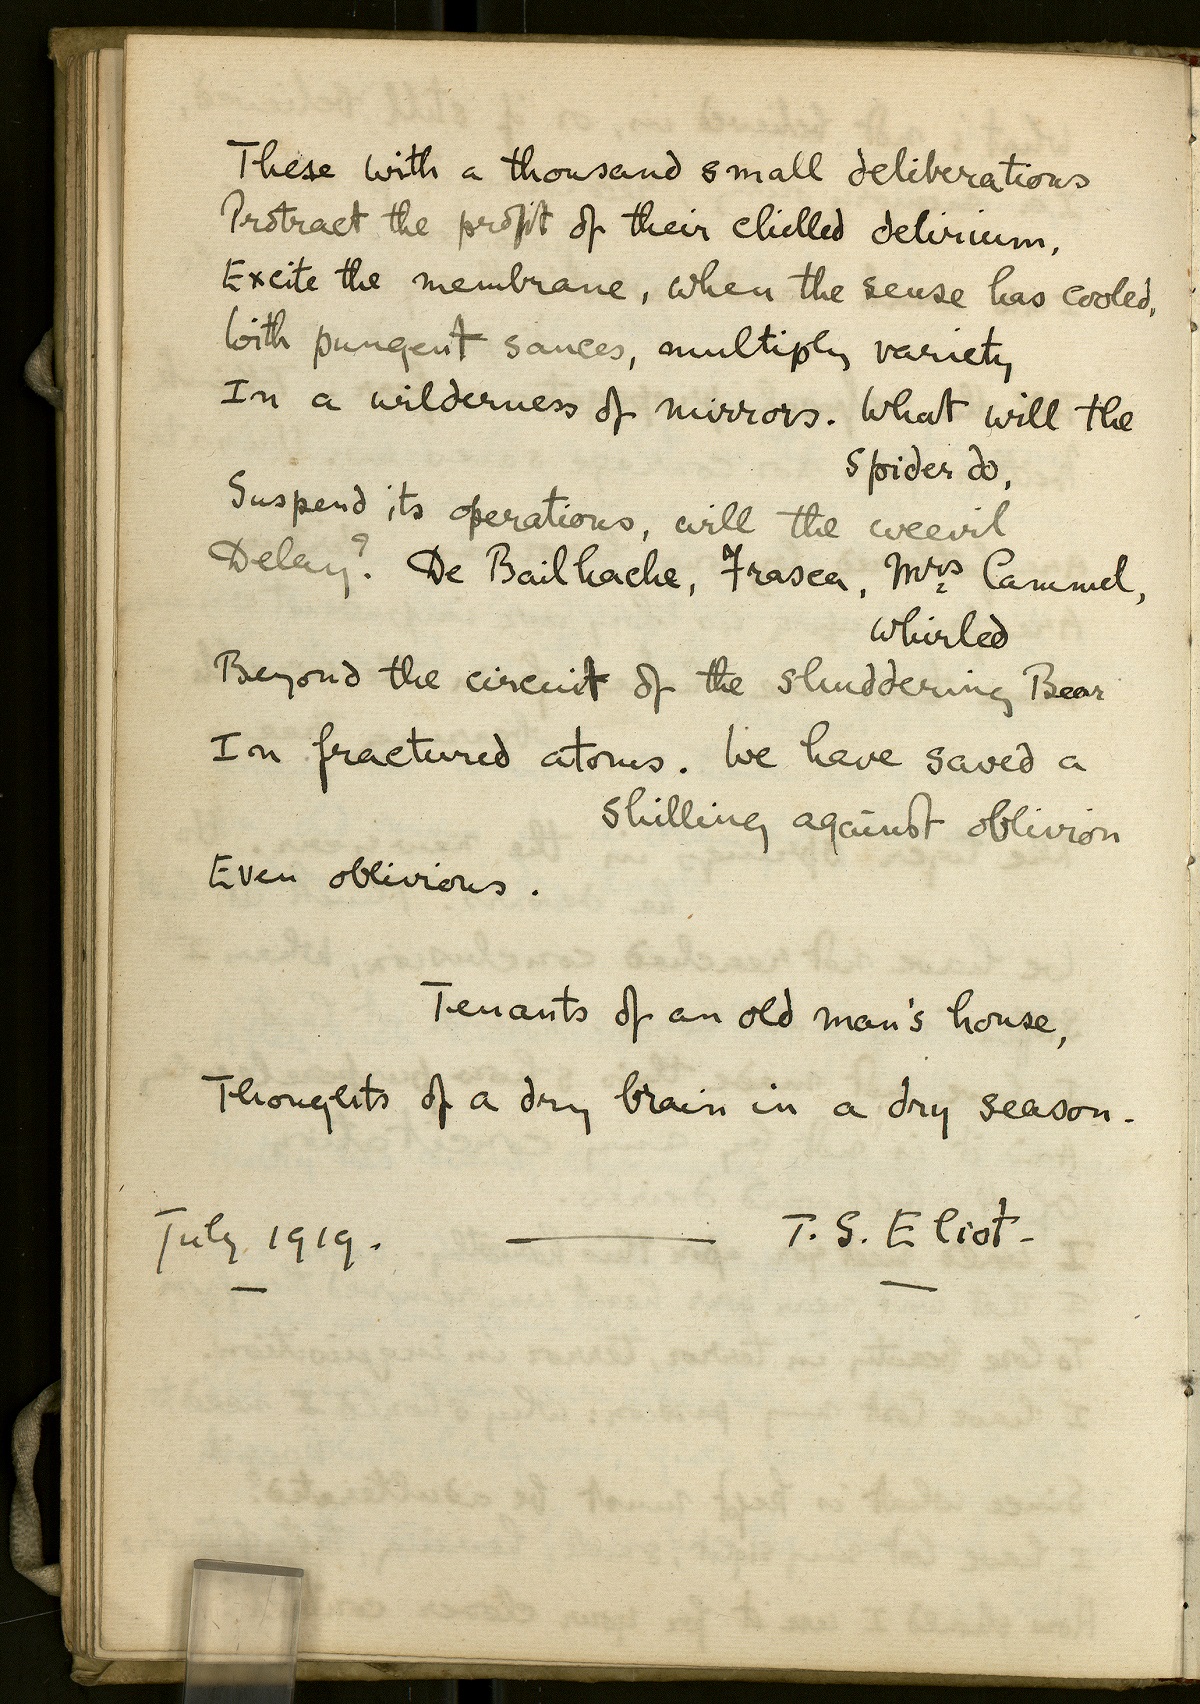 These with a thousand small deliberations
Protract the profit of their chilled delirium,
Excite the membrane, when the sense has cooled,
With pungent sauces, multiply variety
In a wilderness of mirrors. What will the
spider do,
Suspend its operations, will the weevil
Delay? De Bailhache, Frasca, Mrs Cammel,
whirled
Beyond the circuit of the shuddering Bear
In fractured atoms. We have saved a
shilling against oblivion
Even oblivious.
Tenants of an old man's house,
Thoughts of a dry brain in a dry season.
July 1919. T. S. Eliot.